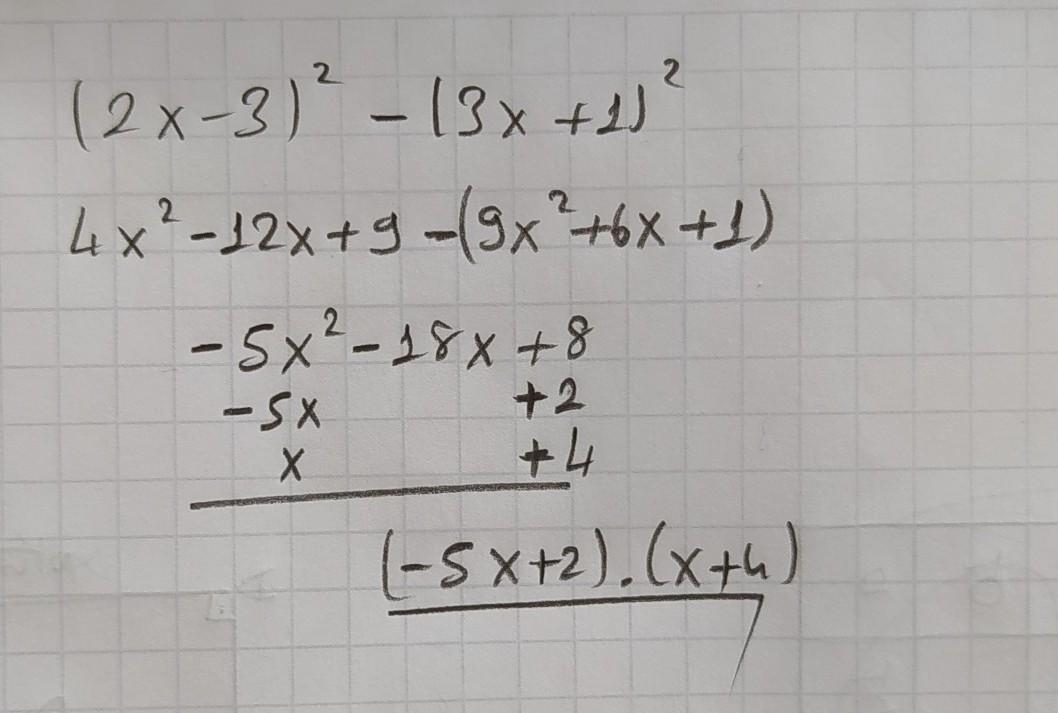 (2x-3)² - (3x+1)²
4x²-12x+9-(9x²+6x+1)
-5x²-18x+8
-5x +2
x +4
(-5x+2).(x+4)